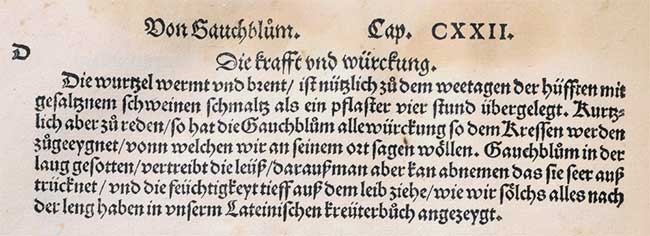 Von Gauchblům. Cap. CXXII.
D
Die krafft vnd würckung.
Die wurtzel wermt vnd brent/ ist nützlich zů dem weetagen der hüfften mit
gesaltznem schweinen schmaltz als ein pflaster vier stund übergelegt. Kurtz-
lich aber zů reden/ so hat die Gauchblům alle würckung so dem Kressen werden
zůgeeygnet/ vonn welchen wir an seinem ort sagen wöllen. Gauchblům in der
laug gesotten/ vertreibt die leüß/ darauß man aber kan abnemen das sie seer auß
trücknet/ vnd die feüchtigkeyt tieff auß dem leib ziehe/ wie wir sölchs alles nach
der leng haben in vnserm Lateinischen kreüterbůch angezeygt.